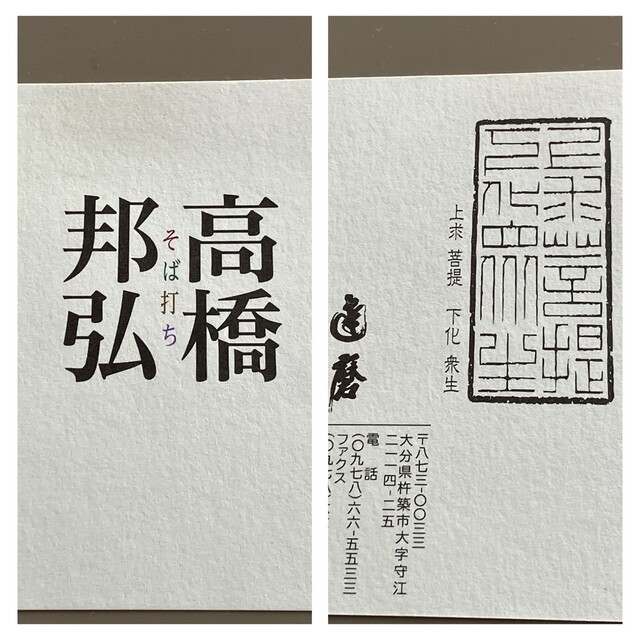 高橋
そば打ち
邦弘
上求菩提
下化衆生
上求 菩提 下化 衆生
達磨
〒八七三-〇〇三三
大分県杵築市大字守江
二一一四-二五
電話
(〇九七八)六六-五五三三
ファクス
(〇九七八)